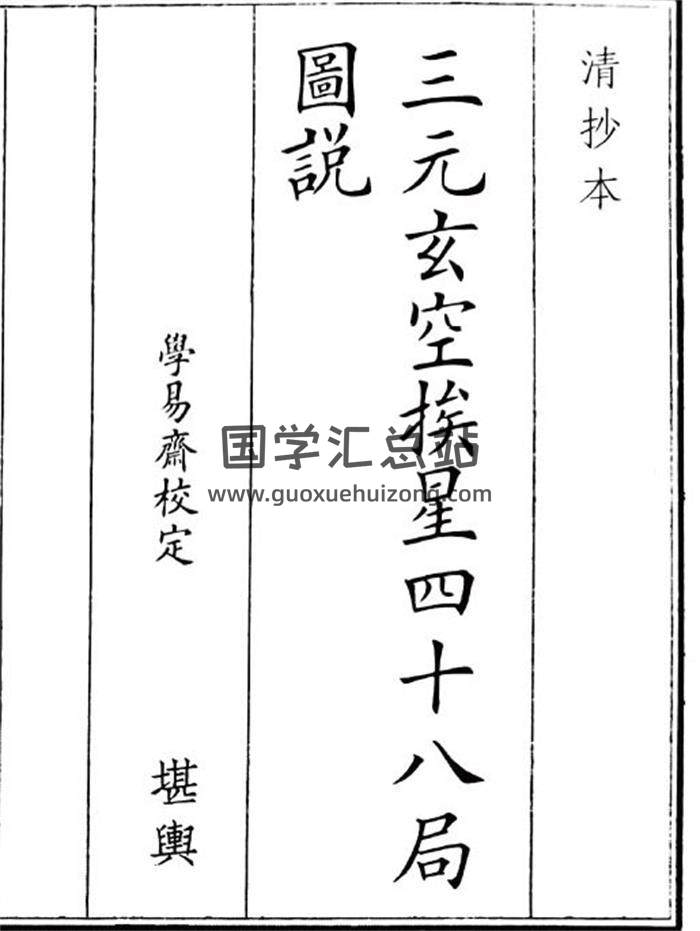 清抄本
三元玄空挨星四十八局
圖説
學易齋校定
堪輿
国学汇总站
www.guoxuehuizong.com